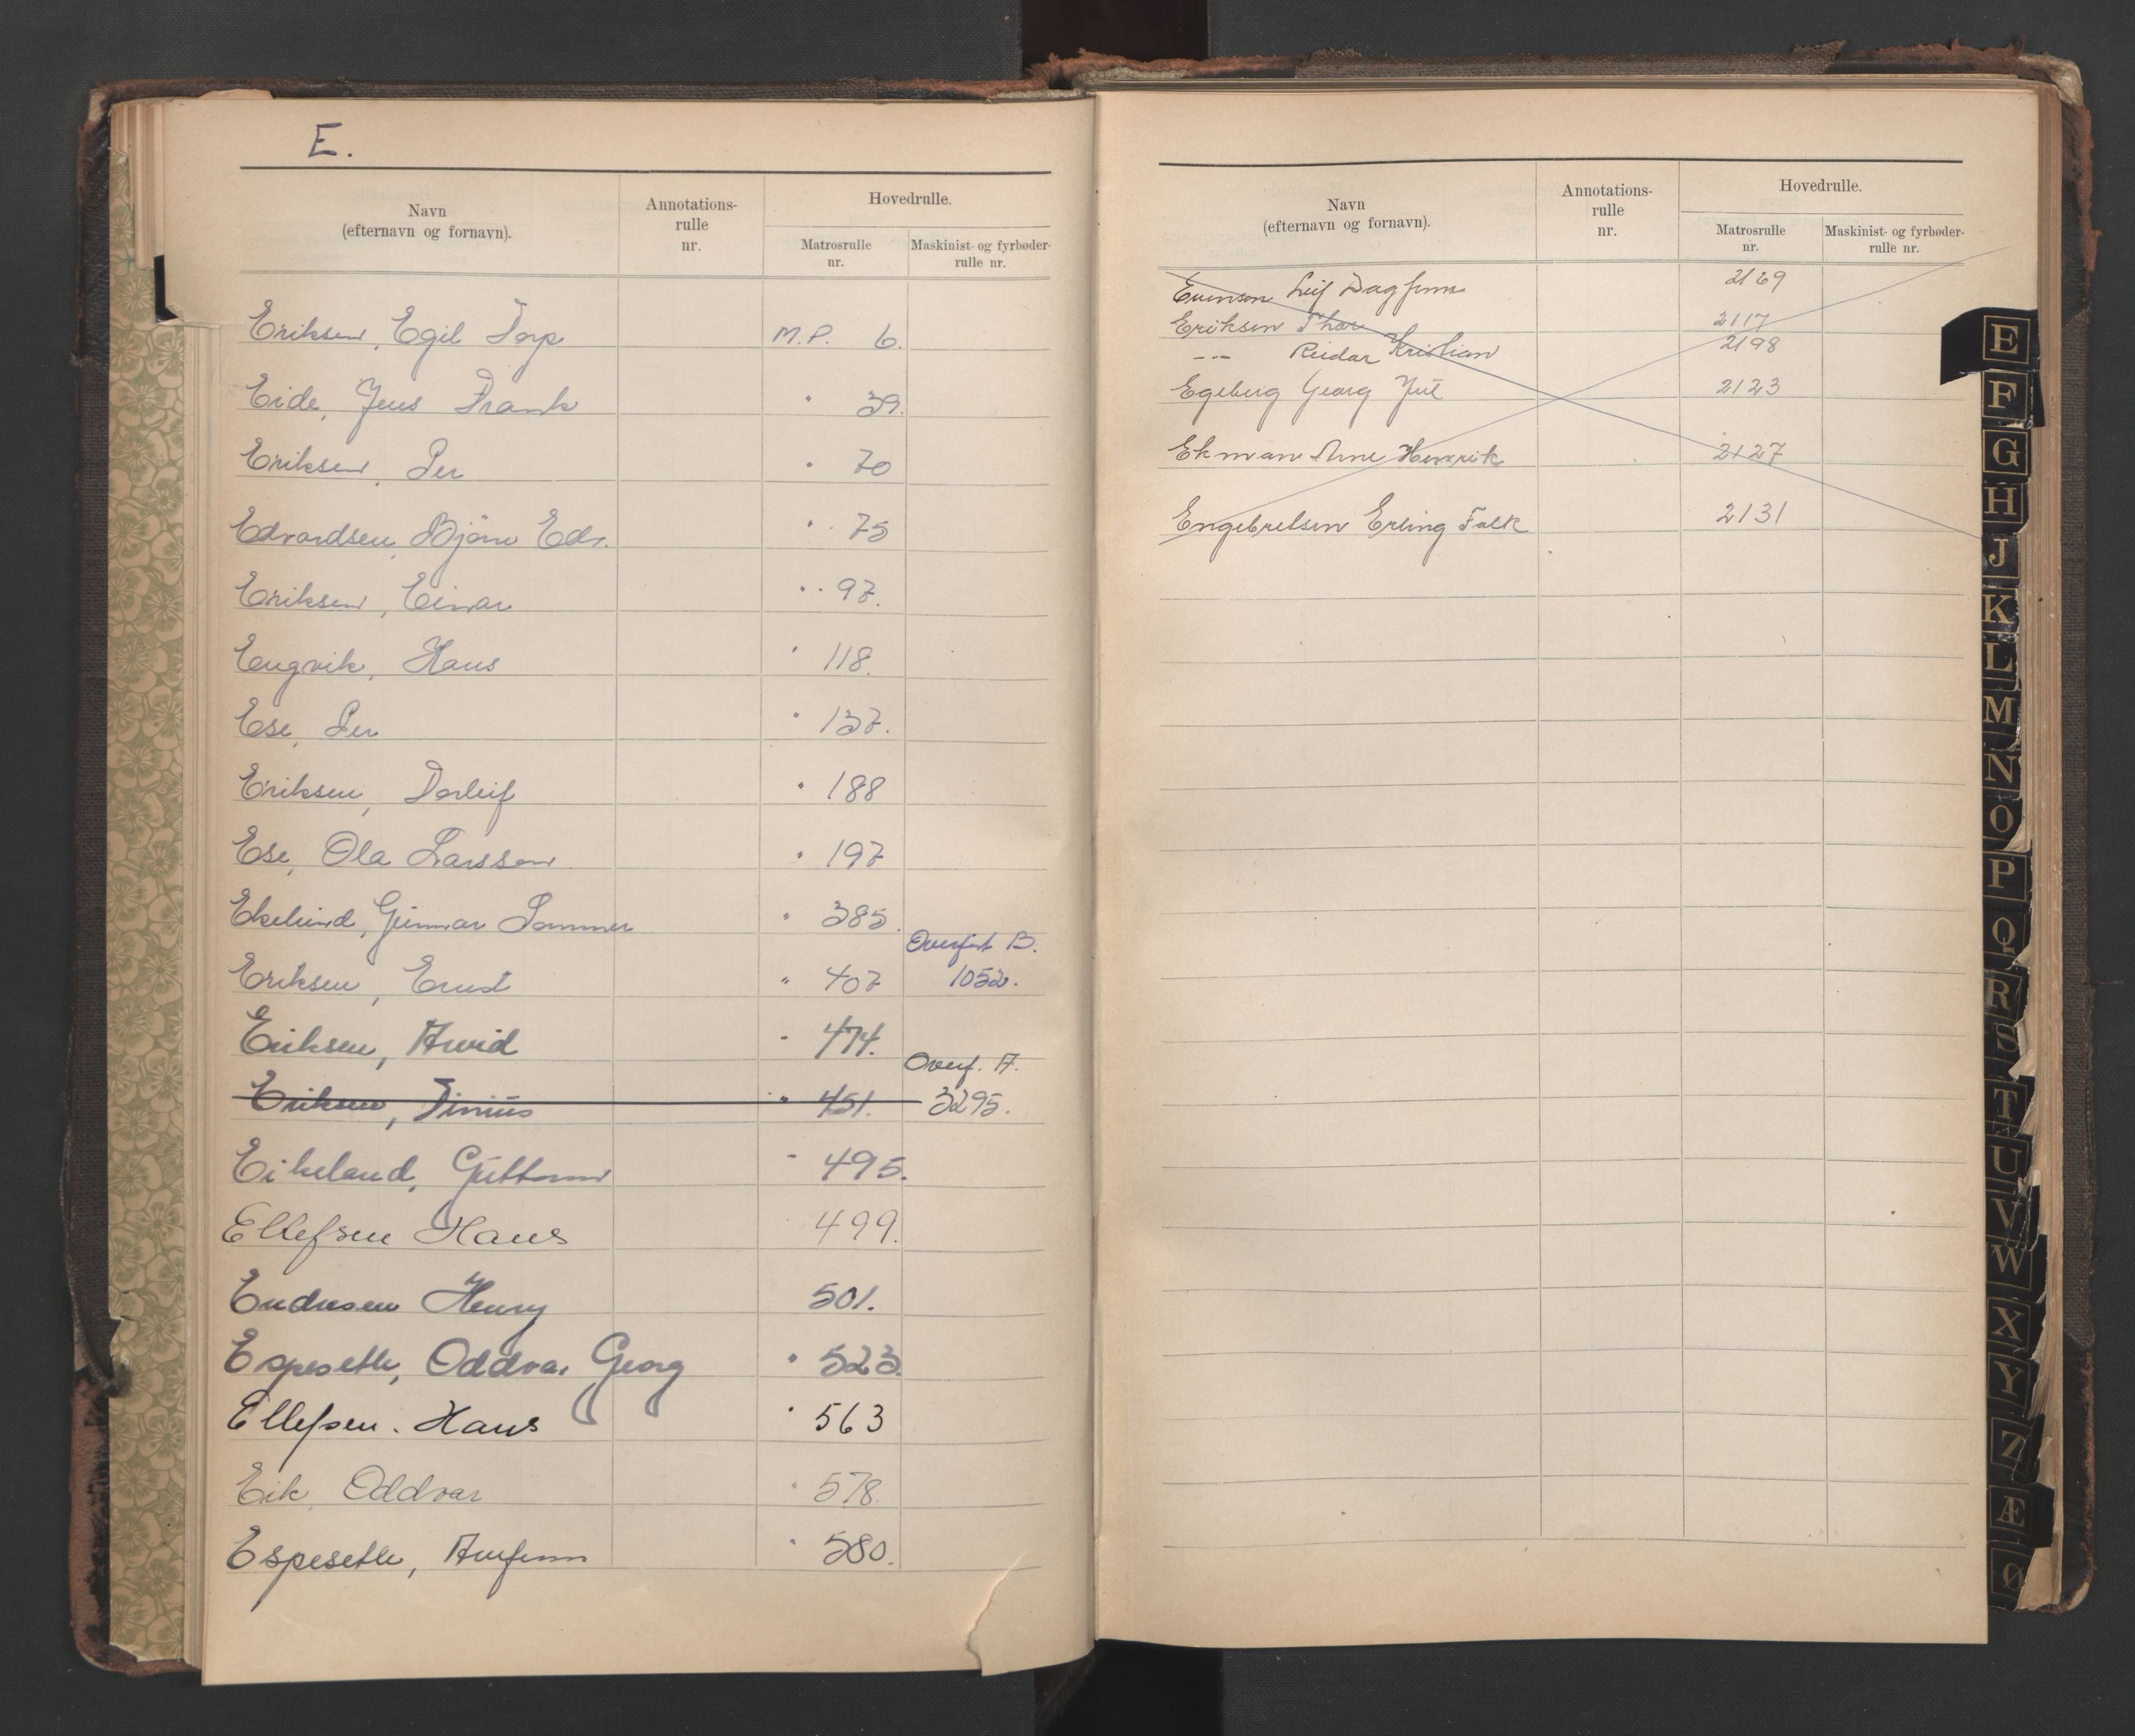 E.
Navn
(efternavn og fornavn).
Annotations-
rulle
nr.
Hovedrulle.
Matrosrulle
nr.
Maskinist- og fyrbøder-
rulle nr.
Eriksen, Egil Torp M.P. 6.
Eide, Jens Frank " 39.
Eriksen, Per " 70
Edvardsen, Björn Edv. " 75
Eriksen, Einar " 97.
Engvik, Hans " 118.
Ese, Per " 137.
Eriksen, Torleif " 188
Ese, Ola Larsson " 197
Ekelund, Gunnar Sommer " 385.
Overført B.
Eriksen, Ernst " 407 1052.
Eriksen, Arvid " 474.
Overf. A.
Eriksen, " 451. 3295.
Eikeland, Guttorm " 495.
Ellefsen Hans 499.
Endresen Henry 501.
Espeseth, Oddvar Georg " 523.
Ellefsen. Hans " 563
Eik, Oddvar " 578.
Espeseth, Arnfinn " 580.
Navn
(efternavn og fornavn).
Annotations-
rulle
nr.
Hovedrulle.
Matrosrulle
nr.
Maskinist- og fyrbøder-
rulle nr.
Leif Dagfinn 2169
Eriksen Thor 2117
-"- Reidar Kristian 2198
Egeberg Georg Jul 2123
Ekman Arne Henrik 2127
Engebretsen Erling Falk 2131
E
F
G
H
J
K
L
M
N
O
P
Q
R
S
T
U
V
W
X
Y
Z
Æ
Ø